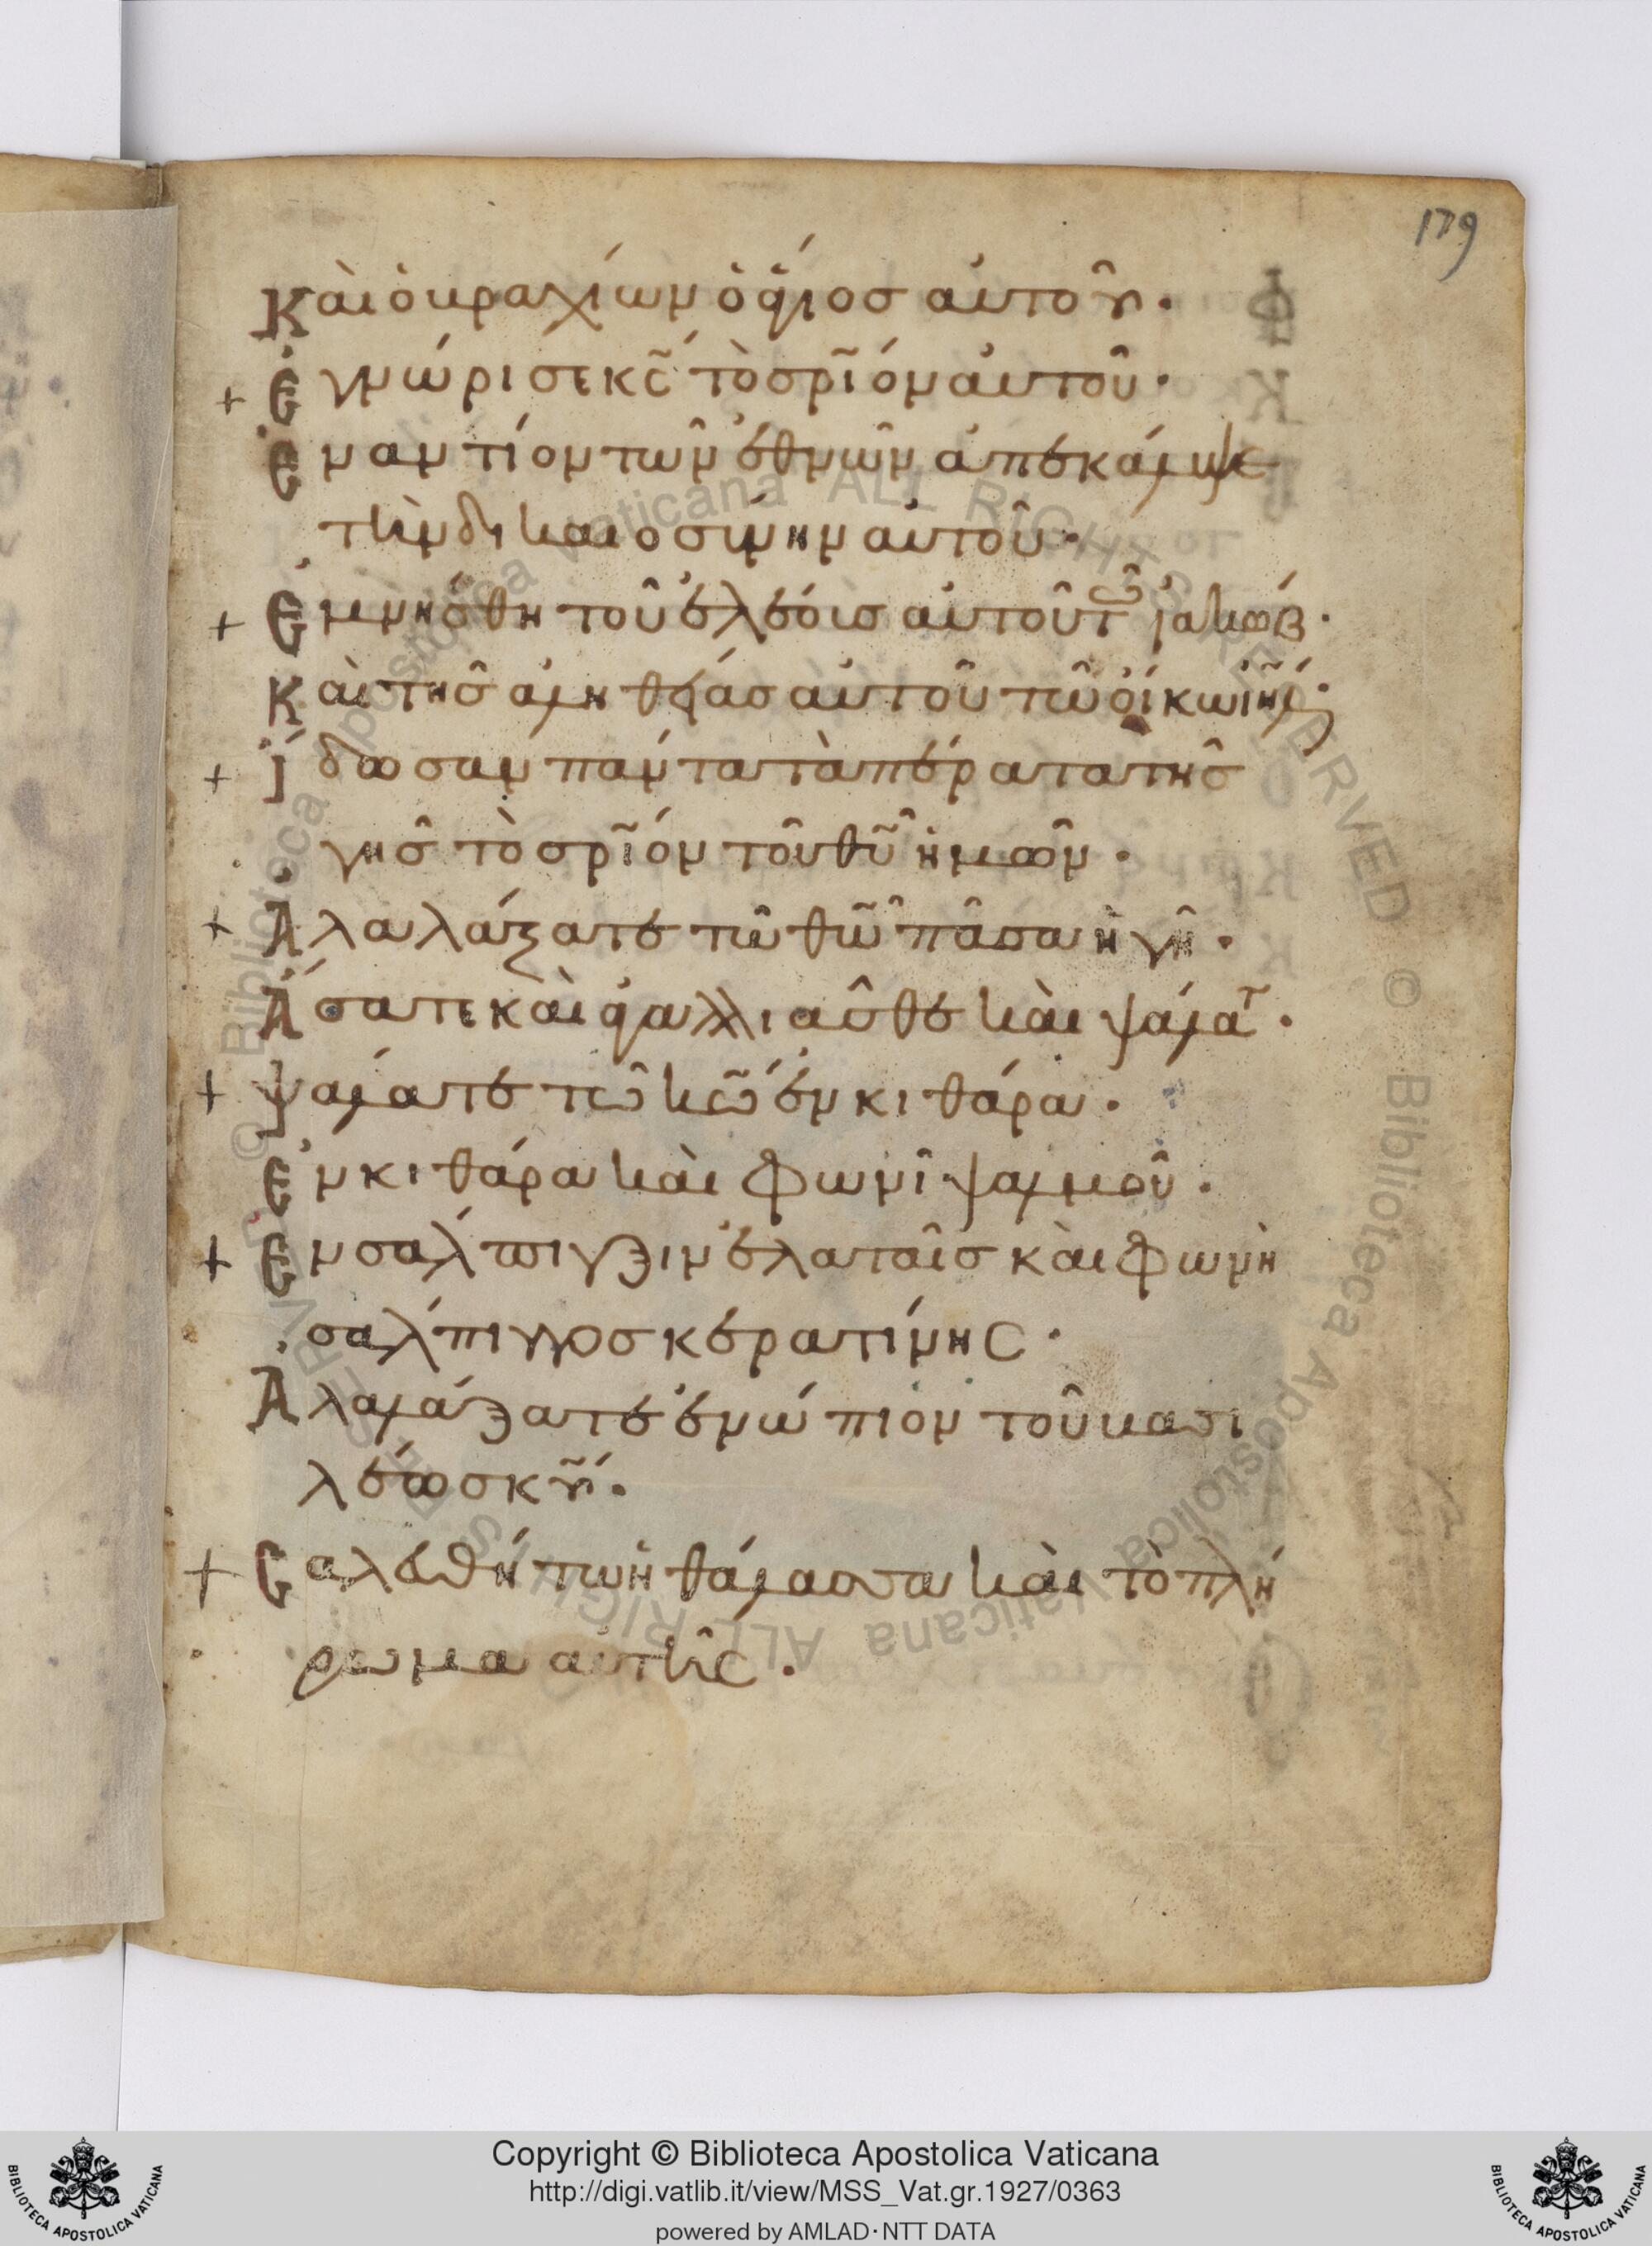 179
Καὶ ὁ βραχίων ὁ ἅγιος αὐτοῦ.
+ Ἐγνώρισε κ̅ς̅ τὸ σ̅ρ̅ιόν αὐτοῦ.
Ἐναντίον τῶν ἐθνῶν ἀπεκάλυψε
τὴν δικαιοσύνην αὐτοῦ.
+ Ἐμνήσθη τοῦ ἐλέοις αὐτοῦ τῶ ἰακώβ.
Καὶ τῆς ἀληθείας αὐτοῦ τῶ οἴκω ι̅η̅λ̅.
+ ἴδωσαν πάντα τὰ πέρατα τῆς
γῆς τὸ σ̅ρ̅ιόν τοῦ θ̅υ̅ ἡμῶν.
+ Ἀλαλάξατε τῶ θ̅ω̅ πᾶσα ἡ γῆ.
Ἄσατε καὶ ἀγαλλιᾶσθε καὶ ψάλατ.
+ ψάλατε τῶ κ̅ω̅ ἐν κιθάρα.
Ἐν κιθάρα καὶ φωνῖ ψαλμοῦ.
+ Ἐν σάλπιγξιν ἐλαταῖς καὶ φωνὴ
σάλπιγγος κερατίνης.
Ἀλαλάξατε ἐνώπιον τοῦ βασι
λέως κ̅υ̅.
+ Σαλευθήτω ἡ θάλασσα καὶ τὸ πλή
ρωμα αὐτῆς.
© Biblioteca Apostolica Vaticana ALL RIGHTS RESERVED
Copyright © Biblioteca Apostolica Vaticana
http://digi.vatlib.it/view/MSS_Vat.gr.1927/0363
powered by AMLAD·NTT DATA
BIBLIOTECA APOSTOLICA VATICANA
BIBLIOTECA APOSTOLICA VATICANA